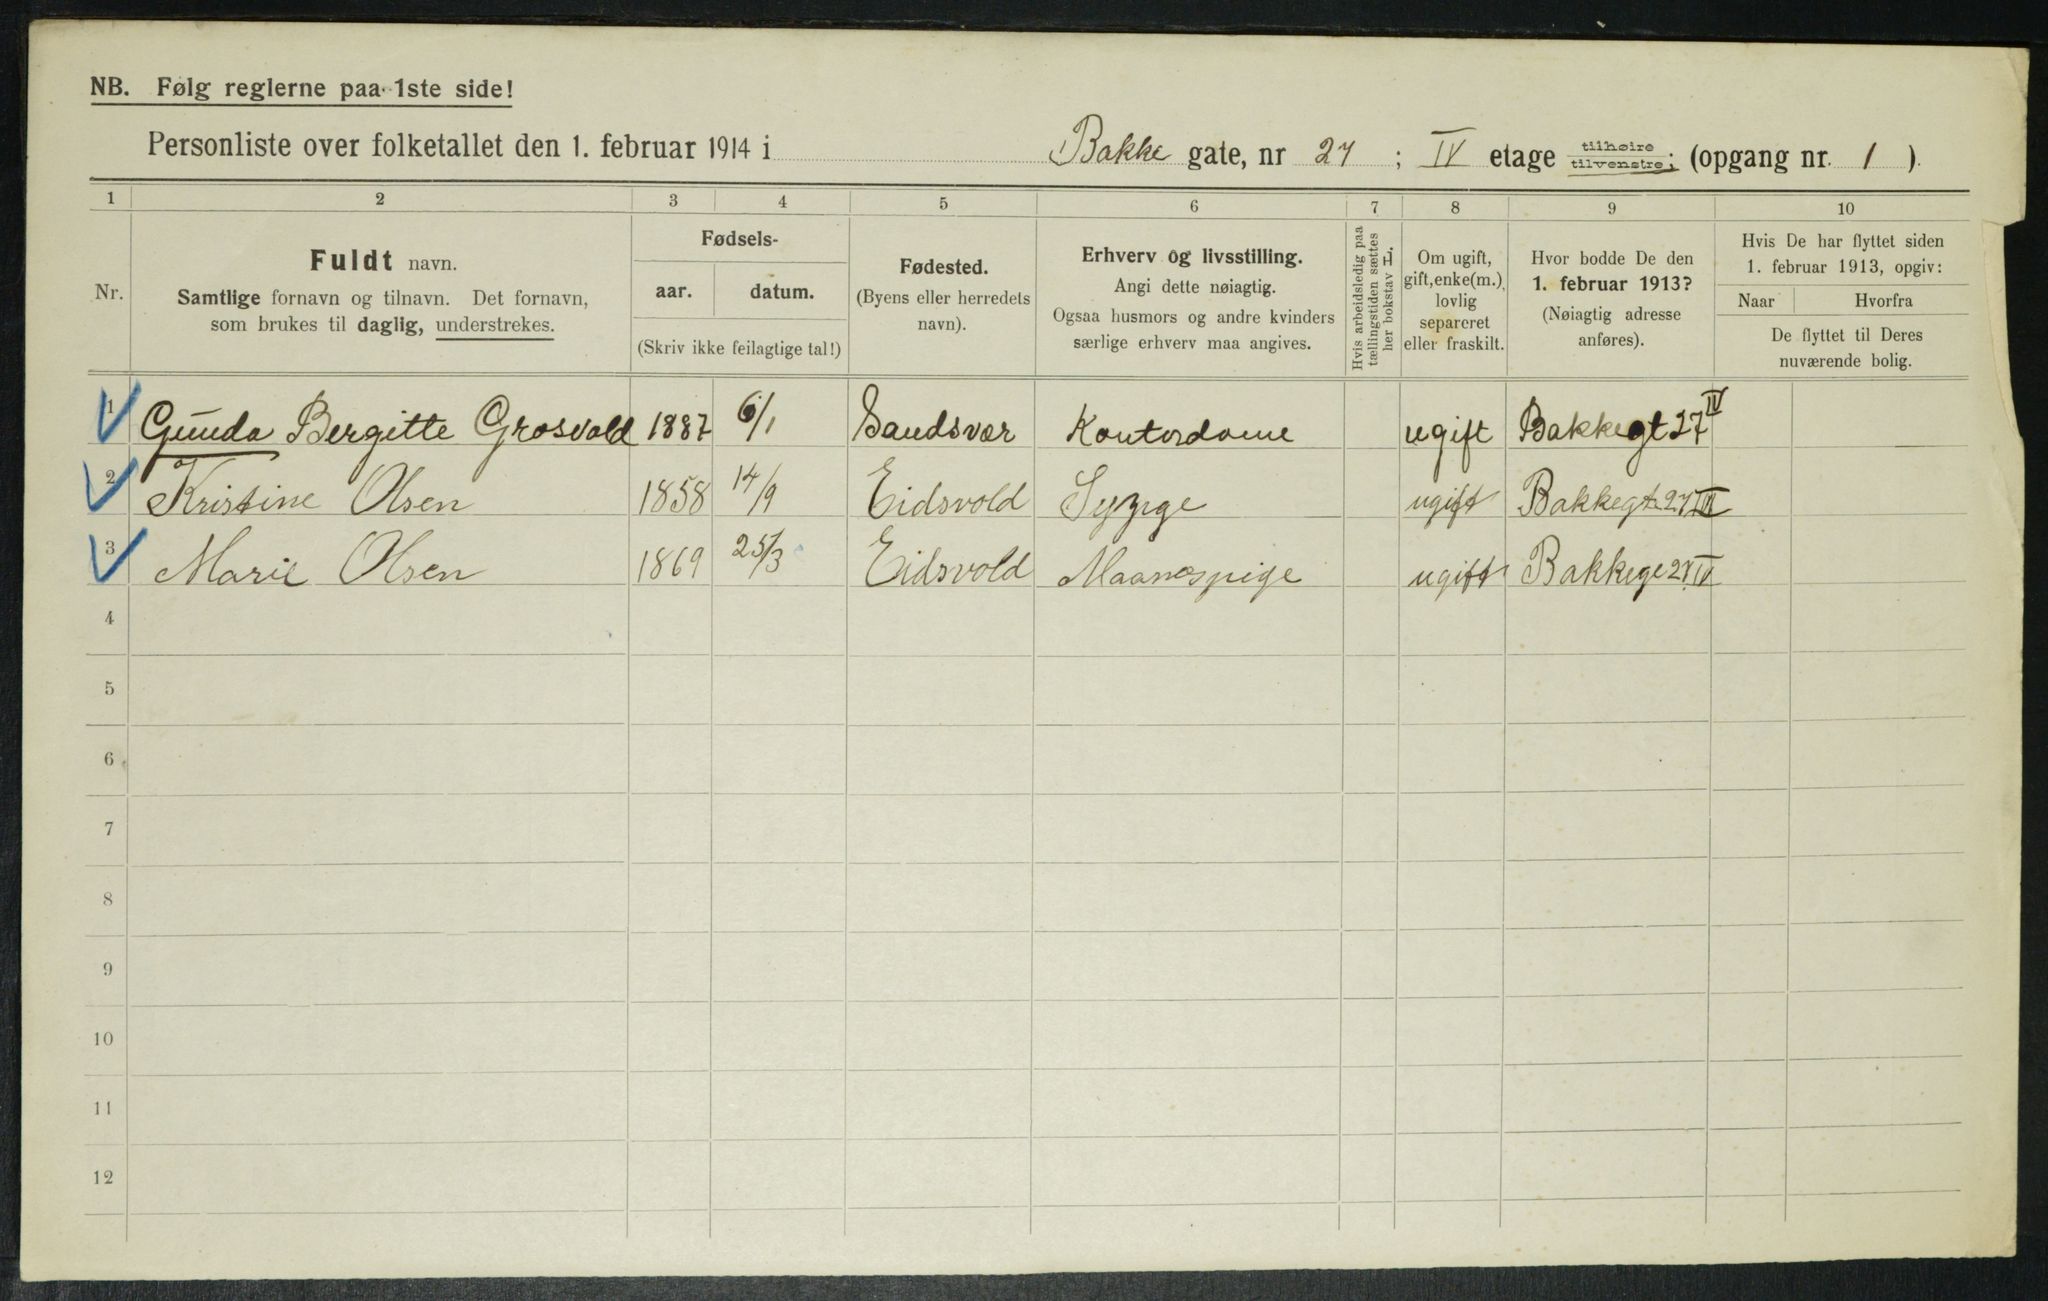 NB. Følg reglerne paa 1ste side!
Personliste over folketallet den 1. februar 1914 i Bakke gate, nr 27 ; IV etage tilhøire tilvenstre; (opgang nr. 1 ).
1 2 3 4 5 6 7 8 9 10
Nr.
Fuldt navn.
Samtlige fornavn og tilnavn. Det fornavn,
som brukes til daglig, understrekes.
Fødsels-
aar. datum.
(Skriv ikke feilagtige tal!)
Fødested.
(Byens eller herredets
navn).
Erhverv og livsstilling.
Angi dette nøiagtig.
Ogsaa husmors og andre kvinders
særlige erhverv maa angives.
Hvis arbeidsledig paa
tællingstiden sættes
her bokstav L.
Om ugift,
gift, enke(m.),
lovlig
separeret
eller fraskilt.
Hvor bodde De den
1. februar 1913?
(Nøiagtig adresse
anføres).
Hvis De har flyttet siden
1. februar 1913, opgiv:
Naar Hvorfra
De flyttet til Deres
nuværende bolig.
1 Gunda Bergitte Grosvold 1887 6/1 Sandsvær Kontordame ugift Bakkegt 27 IV
2 Kristine Olsen 1858 14/9 Eidsvold Sypige ugift Bakkegt 27 IV
3 Marie Olsen 1869 25/3 Eidsvold Maanespige ugift Bakkege 27 IV
4
5
6
7
8
9
10
11
12